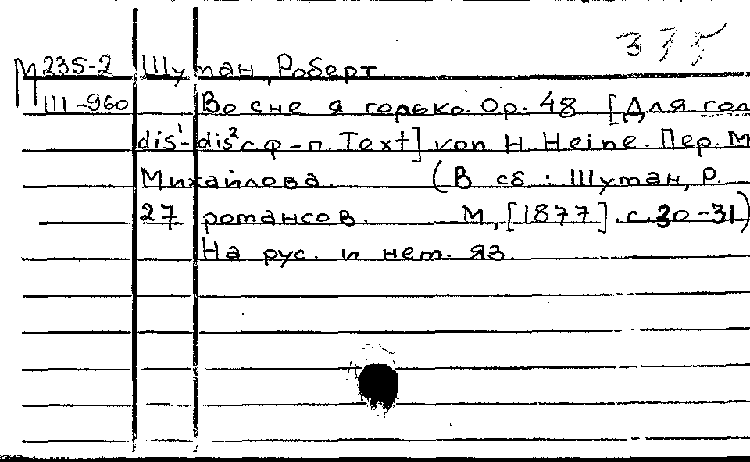 335
М 235-2 Шуман, Роберт
III-960 Во сне я горько. Op. 48 [Для гол
dis¹-dis² с ф-п. Text] von H. Heine. Пер. М
Михайлова. (В сб: Шуман, Р.
27 романсов. М, [1877]. с.30-31)
На рус. и нем. яз.